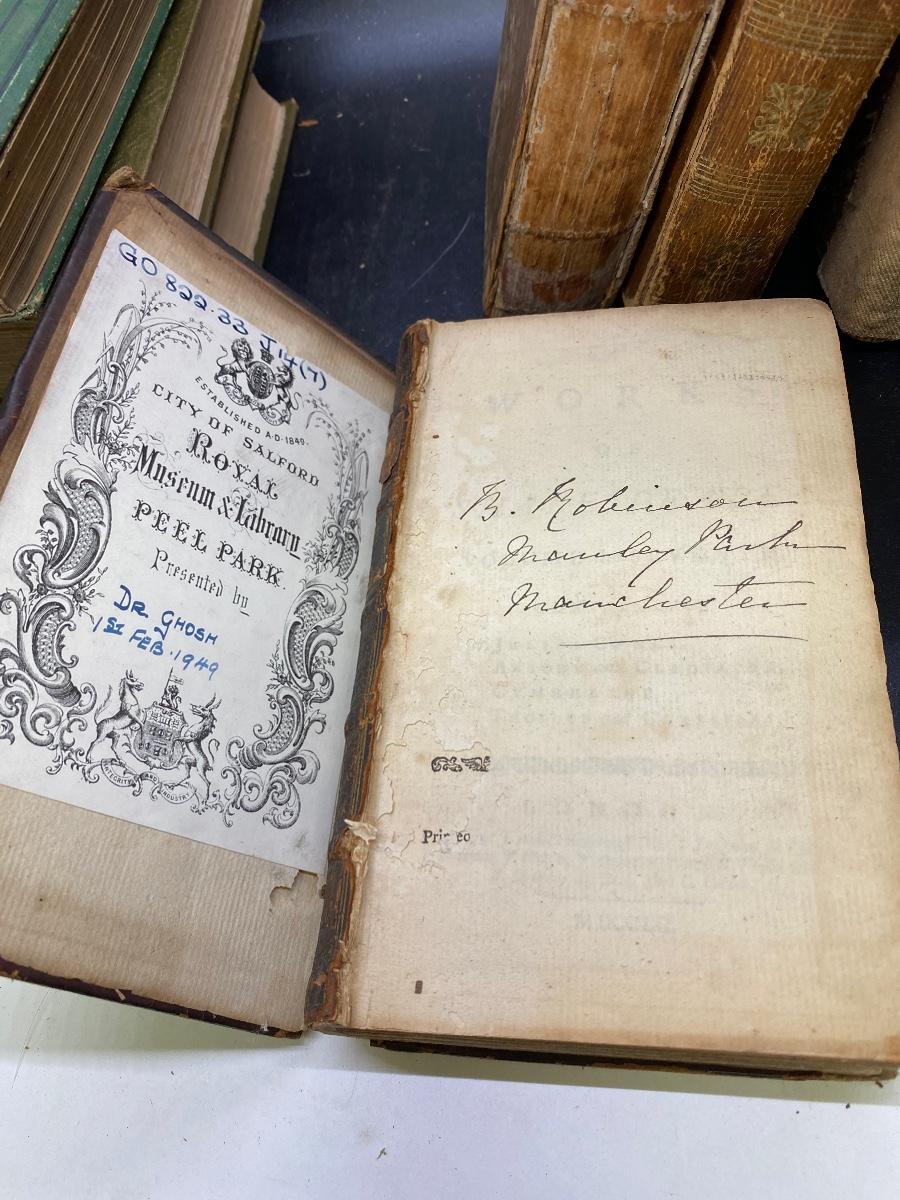 GO 822.33 J14(7)
ESTABLISHED A.D. 1849.
CITY OF SALFORD
ROYAL
Museum & Library
PEEL PARK.
Presented by
DR GHOSH
1ST FEB. 1949
INTEGRITY AND INDUSTRY
B. Robinson
Manley Park
Manchester